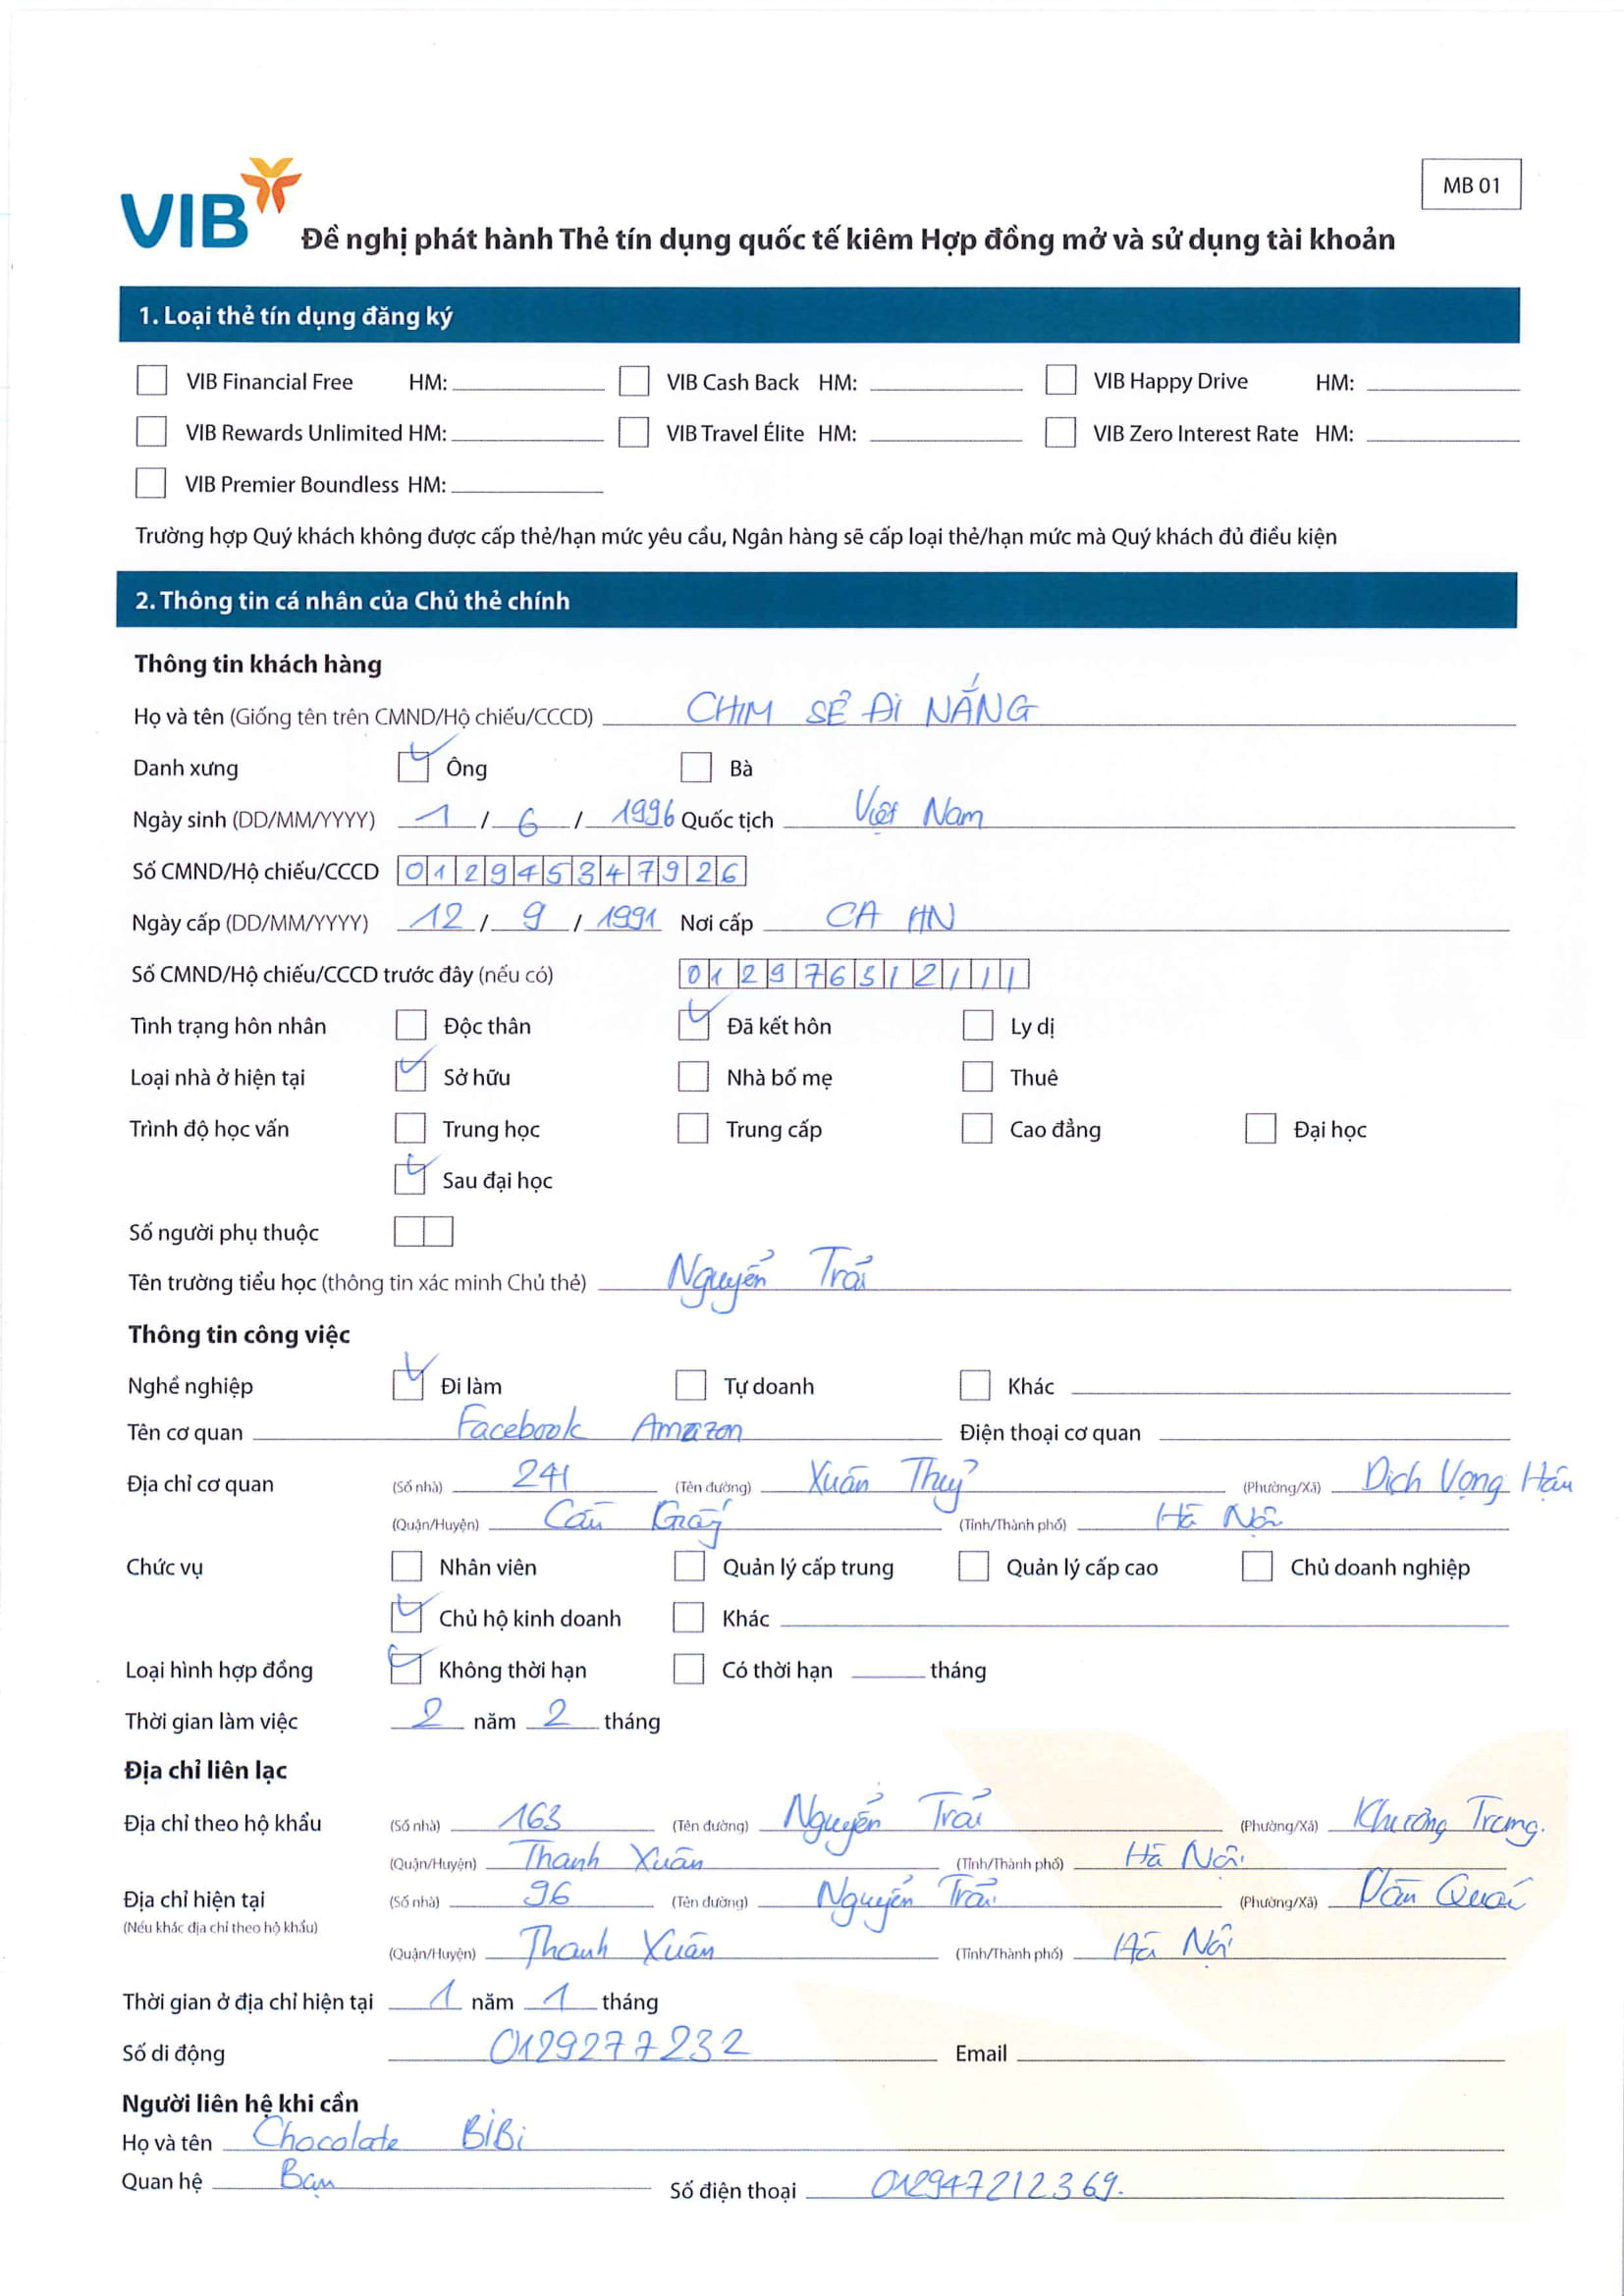 MB 01
VIB
Đề nghị phát hành Thẻ tín dụng quốc tế kiêm Hợp đồng mở và sử dụng tài khoản
1. Loại thẻ tín dụng đăng ký
VIB Financial Free HM: VIB Cash Back HM: VIB Happy Drive HM:
VIB Rewards Unlimited HM: VIB Travel Élite HM: VIB Zero Interest Rate HM:
VIB Premier Boundless HM:
Trường hợp Quý khách không được cấp thẻ/hạn mức yêu cầu, Ngân hàng sẽ cấp loại thẻ/hạn mức mà Quý khách đủ điều kiện
2. Thông tin cá nhân của Chủ thẻ chính
Thông tin khách hàng
Họ và tên (Giống tên trên CMND/Hộ chiếu/CCCD) CHIM SẺ ĐI NẮNG
Danh xưng Ông Bà
Ngày sinh (DD/MM/YYYY) 1 / 6 / 1996 Quốc tịch Việt Nam
Số CMND/Hộ chiếu/CCCD 012945347926
Ngày cấp (DD/MM/YYYY) 12 / 9 / 1991 Nơi cấp CA HN
Số CMND/Hộ chiếu/CCCD trước đây (nếu có) 012976512111
Tình trạng hôn nhân Độc thân Đã kết hôn Ly dị
Loại nhà ở hiện tại Sở hữu Nhà bố mẹ Thuê
Trình độ học vấn Trung học Trung cấp Cao đẳng Đại học
Sau đại học
Số người phụ thuộc
Tên trường tiểu học (thông tin xác minh Chủ thẻ) Nguyễn Trãi
Thông tin công việc
Nghề nghiệp Đi làm Tự doanh Khác
Tên cơ quan Facebook Amazon Điện thoại cơ quan
Địa chỉ cơ quan (Số nhà) 241 (Tên đường) Xuân Thuỷ (Phường/Xã) Dịch Vọng Hậu
(Quận/Huyện) Cầu Giấy (Tỉnh/Thành phố) Hà Nội
Chức vụ Nhân viên Quản lý cấp trung Quản lý cấp cao Chủ doanh nghiệp
Chủ hộ kinh doanh Khác
Loại hình hợp đồng Không thời hạn Có thời hạn tháng
Thời gian làm việc 2 năm 2 tháng
Địa chỉ liên lạc
Địa chỉ theo hộ khẩu (Số nhà) 163 (Tên đường) Nguyễn Trãi (Phường/Xã) Khương Trung.
(Quận/Huyện) Thanh Xuân (Tỉnh/Thành phố) Hà Nội
Địa chỉ hiện tại (Số nhà) 96 (Tên đường) Nguyễn Trãi (Phường/Xã) Văn Quán
(Nếu khác địa chỉ theo hộ khẩu)
(Quận/Huyện) Thanh Xuân (Tỉnh/Thành phố) Hà Nội
Thời gian ở địa chỉ hiện tại 1 năm 1 tháng
Số di động 0129277232 Email
Người liên hệ khi cần
Họ và tên Chocolate BiBi
Quan hệ Bạn Số điện thoại 012947212369.